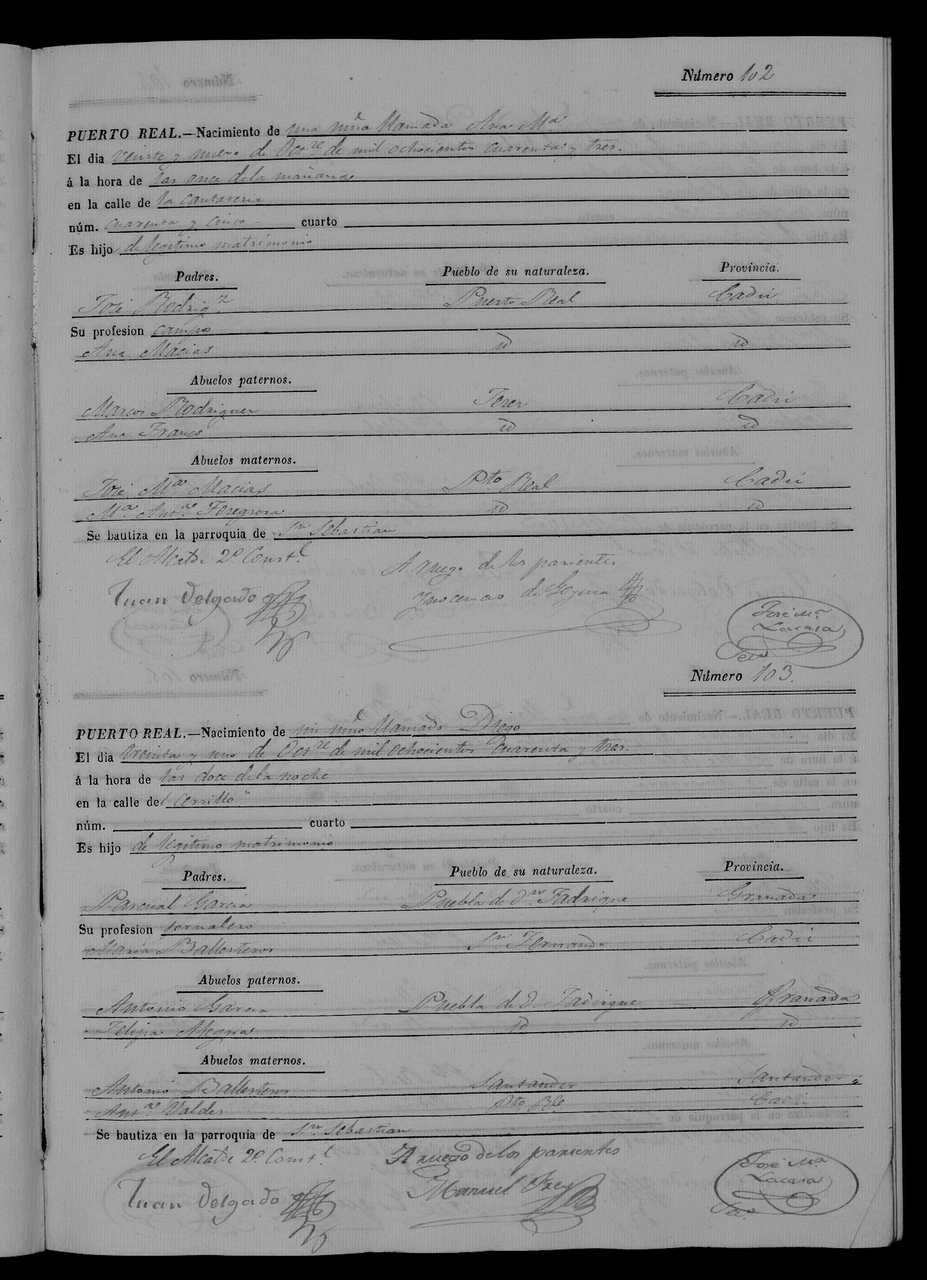 Número 102
PUERTO REAL.—Nacimiento de una niña llamada Ana Mª
El dia veinte y nueve de Octre de mil ochocientos cuarenta y tres.
á la hora de las once de la mañana
en la calle de la
núm. cuarenta y cinco cuarto
Es hijo de legitimo matrimonio
Padres. Pueblo de su naturaleza. Provincia.
José Rodrigz Puerto Real Cadiz
Su profesion campo
Ana Macias id id
Abuelos paternos.
Marcos Rodriguez Jerez Cadiz
Ana Franco id id
Abuelos maternos.
José Mª Macias Pto Real Cadiz
Mª Antª id id
Se bautiza en la parroquia de Sn Sebastian
El Alcalde 2º Constl
A ruego de los parientes
Juan Delgado
Inocencio de
José Mª
Lacasa
Seco
Número 103.
PUERTO REAL.—Nacimiento de un niño llamado Diego
El dia treinta y uno de Octre de mil ochocientos cuarenta y tres.
á la hora de las doce de la noche
en la calle del Cerrillo
núm. cuarto
Es hijo de legitimo matrimonio
Padres. Pueblo de su naturaleza. Provincia.
Pascual Garcia Puebla de Dn Fadrique Granada
Su profesion jornalero
Maria Ballesteros Sn Fernando Cadiz
Abuelos paternos.
Antonio Garcia Puebla de D. Fadrique Granada
Felipa id id
Abuelos maternos.
Antonio Ballesteros Santander Santander
Antª Valdes Pto Rl Cadiz
Se bautiza en la parroquia de Sn Sebastian
El Alcalde 2º Constl
A ruego de los parientes
Juan Delgado
Manuel Rey
José Mª
Lacasa
Seco